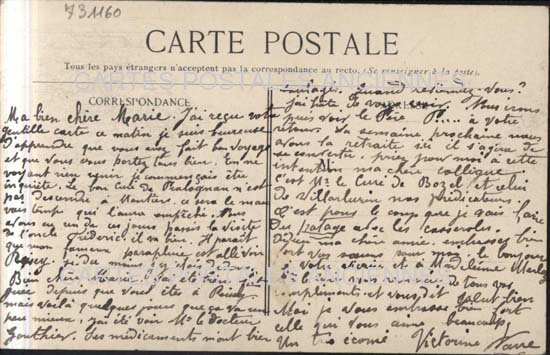 731160
CARTE POSTALE
Tous les pays étrangers n'acceptent pas la correspondance au recto. (Se renseigner à la poste).
CARTES POSTALES ANCIENNES
CORRESPONDANCE
Ma bien chère Marie. J'ai reçu votre
gentille carte ce matin je suis heureuse
d'apprendre que vous avez fait bon voyage
et que vous vous portez très bien. En ne
voyant rien venir je commençais être
inquiète. Le bon Curé de Pralognan n'est
pas descendu à Moutiers ce sera le mau
vais temps qui l'aura empêché. Nous
avons eu un de ces jours passés la visite
de l'oncle Fréderic. il va bien. Il parait
que mon parapluie est allé voir
Bien
depuis que vous êtes à
mais voilà quelques jours que ça va un
peu mieux, j'ai été voir Mr le docteur
Gonthier, des médicaments m'ont bien
Quand revenez-vous?
J'ai hâte de vous voir. Nous irons
puis voir le Père P.... à votre
retour. La semaine prochaine nous
avons la retraite ici il s'agira de
se convertir. priez pour moi à cette
intention ma chère collègue.
C'est Mr le Curé de Bozel et celui
de Villarlurin nos prédicateurs.
C'est pour le coup que je vais faire
du potage avec les casseroles.
Adieu ma chère amie. embrassez bien
fort vos soeurs pour moi, le bonjour
à
de tous vos
compliments et vous, salut bien
Moi je vous embrasse bien fort
celle que vous aime beaucoup
Victorine
CARTES POSTALES ANCIENNES